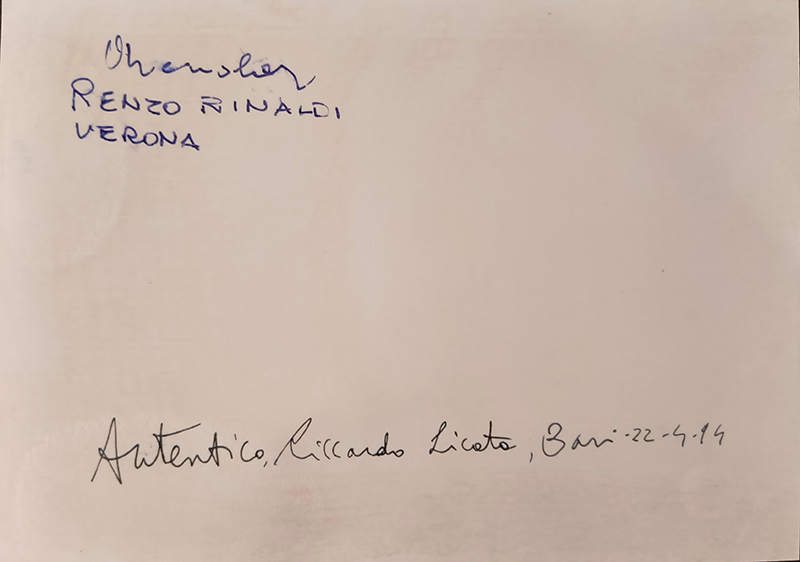 RENZO RINALDI
VERONA
Autentico, Riccardo Licata, Bari-22-4-14